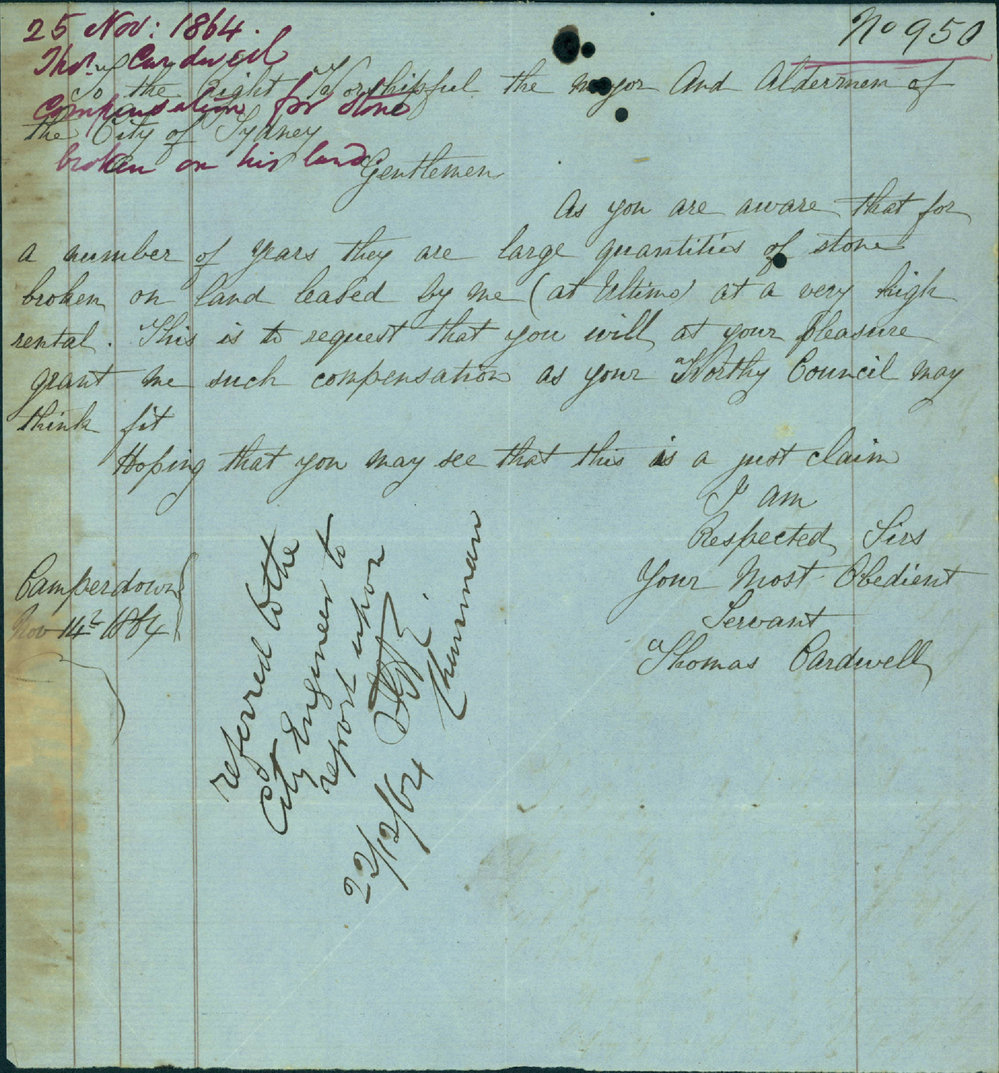 25 Nov: 1864.
No 950
Thos. Cardwell
Compensation for stone
broken on his land
To the Right Worshipful the mayor And Aldermen of
the City of Sydney
Gentlemen
As you are aware that for
a number of years they are large quantities of stone
broken on land leased by me (at Ultimo) at a very high
rental. This is to request that you will at your pleasure
grant me such compensation as your Worthy Council may
think fit
Hoping that you may see that this is a just claim
I am
Respected Sirs
Your Most Obedient
Servant
Thomas Cardwell
Camperdown
Nov 14th 1864
referred to the
City Engineer to
report upon
Chairman
22/12/64